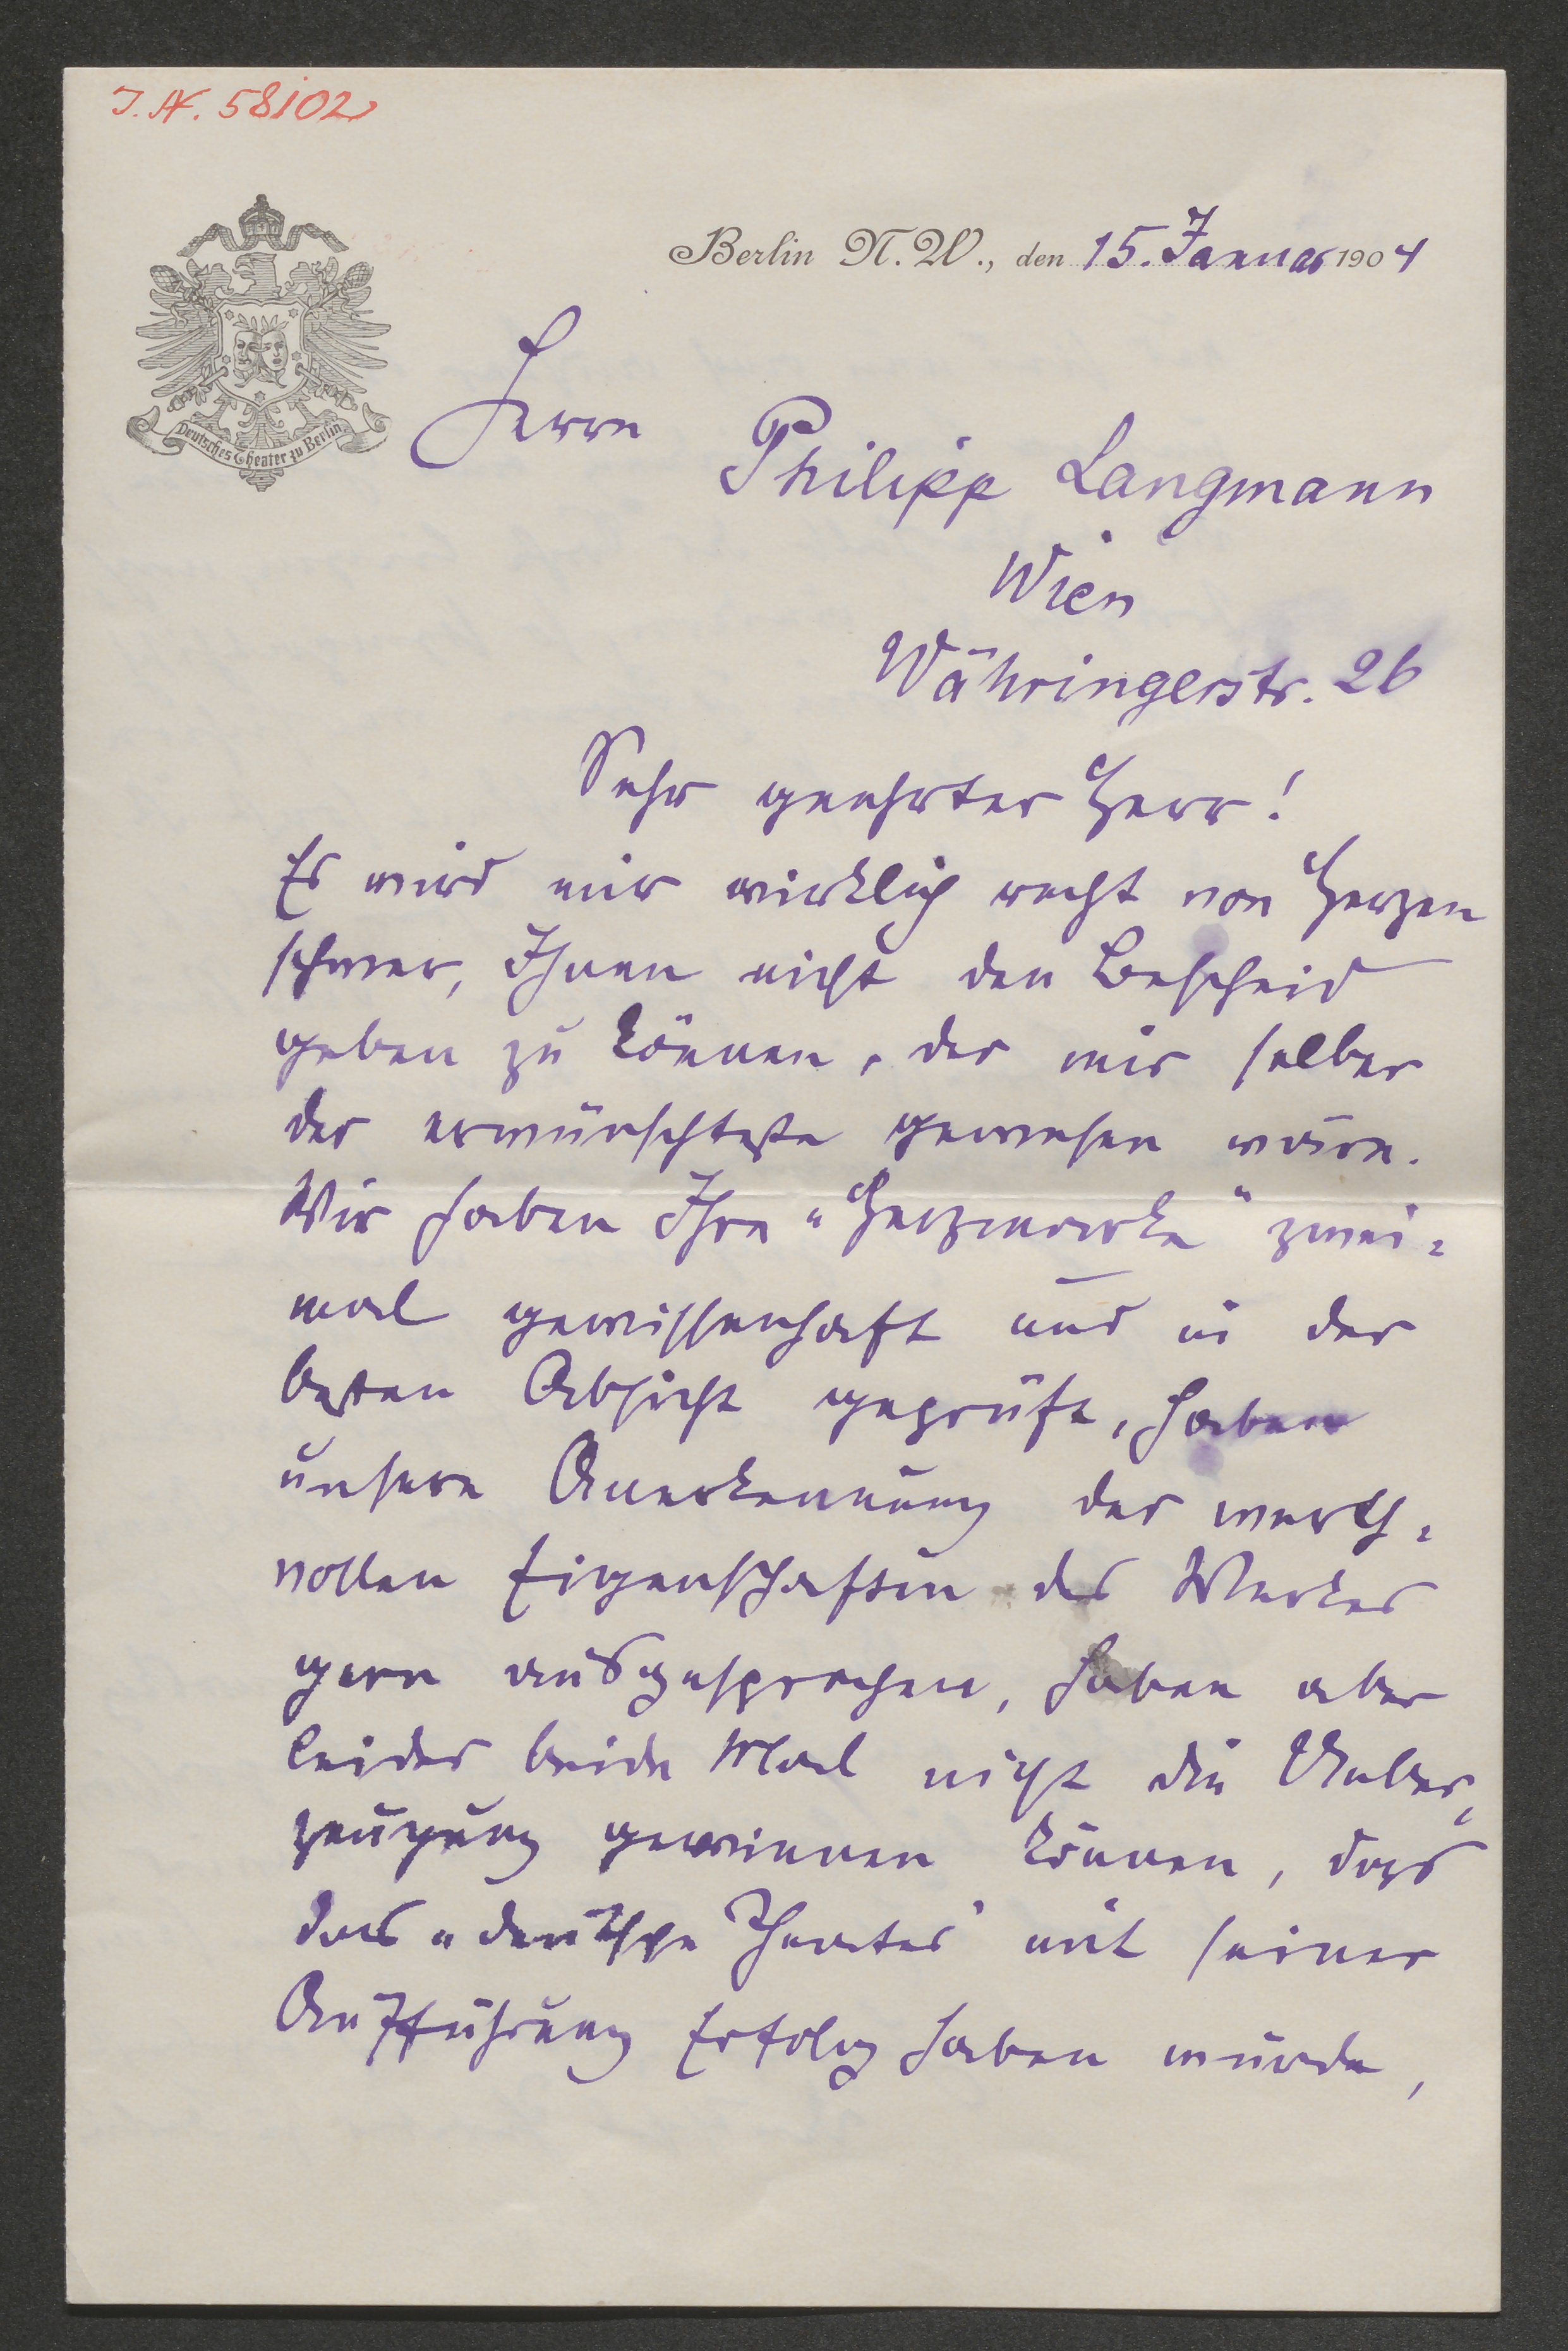 J. N. 58102
Berlin N. W., den 15. Januar 1904
Deutsches Theater zu Berlin
Herrn
Philipp Langmann
Wien
Währingerstr. 26
Sehr geehrter Herr!
Es wird mir wirklich recht von Herzen
schwer, Ihnen nicht den Bescheid
geben zu können, der mir selber
der erwünschteste gewesen wäre.
Wir haben Ihre „Herzmarke" zwei-
mal gewissenhaft und in der
besten Absicht geprüft, haben
unsere Anerkennung der werth-
vollen Eigenschaften des Werkes
gern ausgesprochen, haben aber
leider beide Mal nicht die Ueber-
zeugung gewinnen können, dass
das „deutsche Theater" mit seiner
Aufführung Erfolg haben würde,